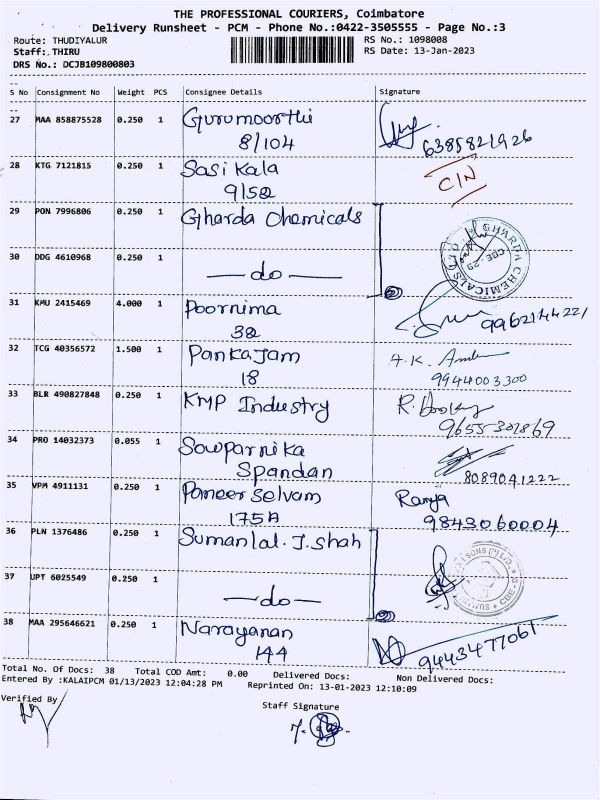 THE PROFESSIONAL COURIERS, Coimbatore
Delivery Runsheet - PCM - Phone No.:0422-3505555 - Page No.:3
Route: THUDIYALUR RS No.: 1098008
Staff: THIRU RS Date: 13-Jan-2023
DRS No.: DCJB109800803
S No Consignment No Weight PCS Consignee Details Signature
27 MAA 858875528 0.250 1 Gurumoorthi
8/104 6385821926
28 KTG 7121815 0.250 1 Sasi Kala C/N
9/52
29 PON 7996806 0.250 1 Gharda Chemicals
GHARDA CHEMICALS LTD. CBE-29
30 DDG 4610968 0.250 1 — do —
31 KMU 2415469 4.000 1 Poornima
32 9962144221
32 TCG 40356572 1.500 1 Pankajam A.K.
18 9944003300
33 BLR 490827848 0.250 1 KMP Industry R.
9655301869
34 PRO 14032373 0.055 1 Sowparnika
Spandan 8089041222
35 VPM 4911131 0.250 1 Panneer Selvam Ranja
175A 9843060004
36 PLN 1376486 0.250 1 Sumanlal. J. Shah
37 UPT 6025549 0.250 1 — do —
38 MAA 295646621 0.250 1 Narayanan
144 9443477061
Total No. Of Docs: 38 Total COD Amt: 0.00 Delivered Docs: Non Delivered Docs:
Entered By :KALAIPCM 01/13/2023 12:04:28 PM Reprinted On: 13-01-2023 12:10:09
Verified By Staff Signature